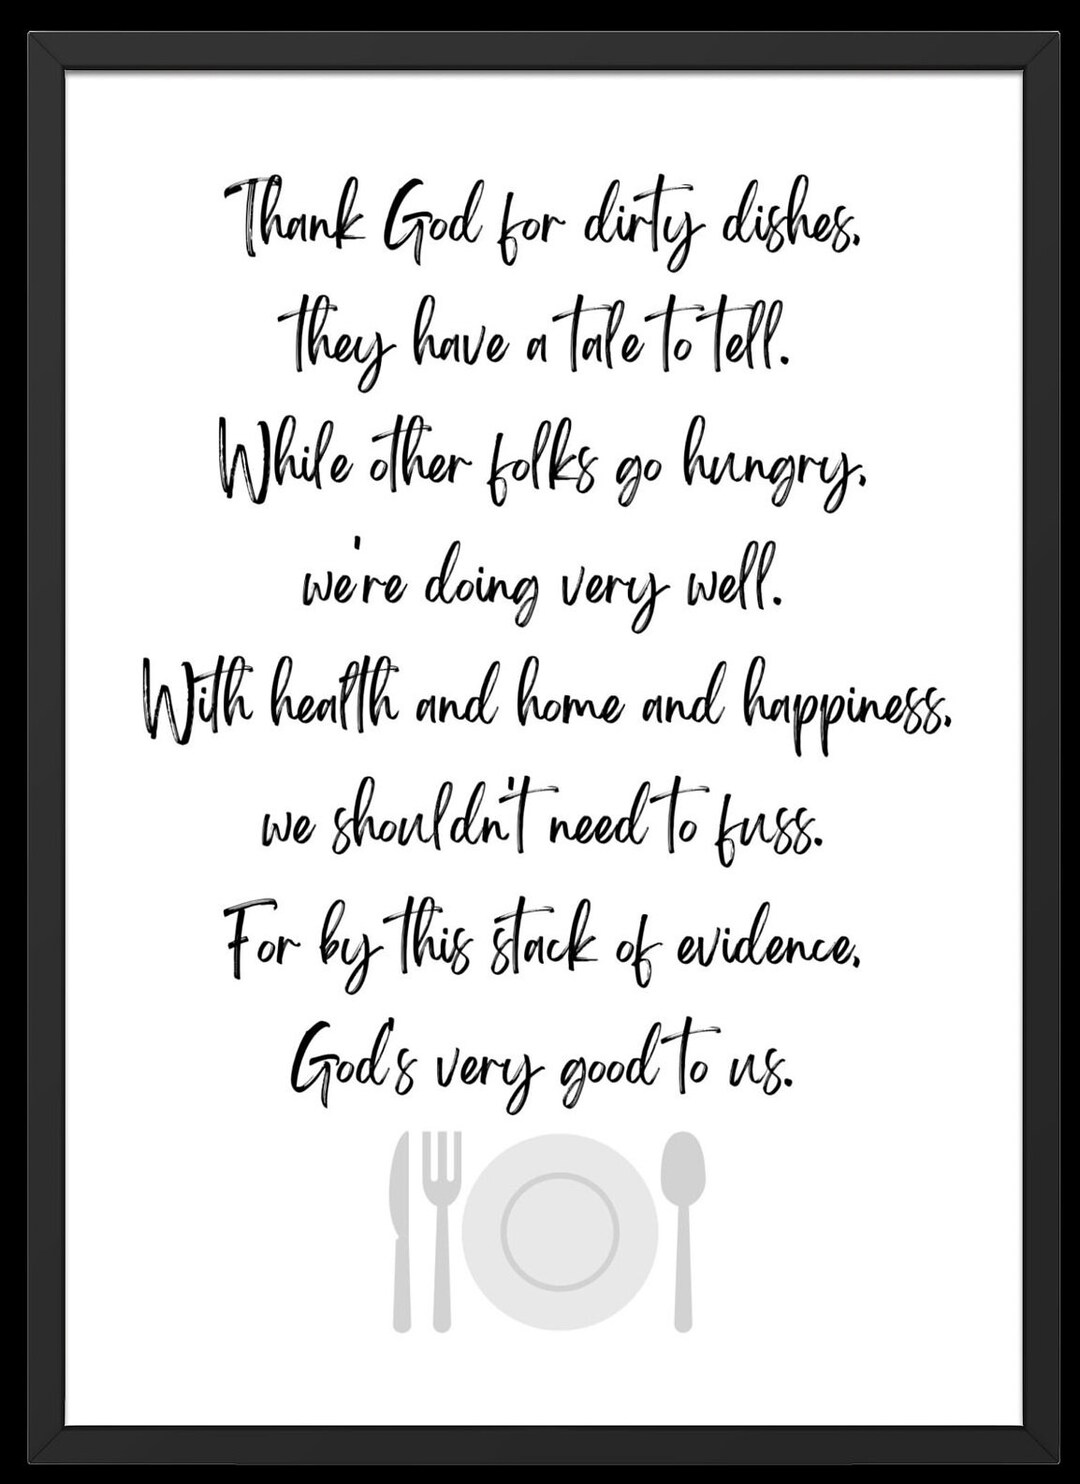 Thank God for dirty dishes,
they have a tale to tell.
While other folks go hungry,
we're doing very well.
With health and home and happiness,
we shouldn't need to fuss.
For by this stack of evidence,
God's very good to us.